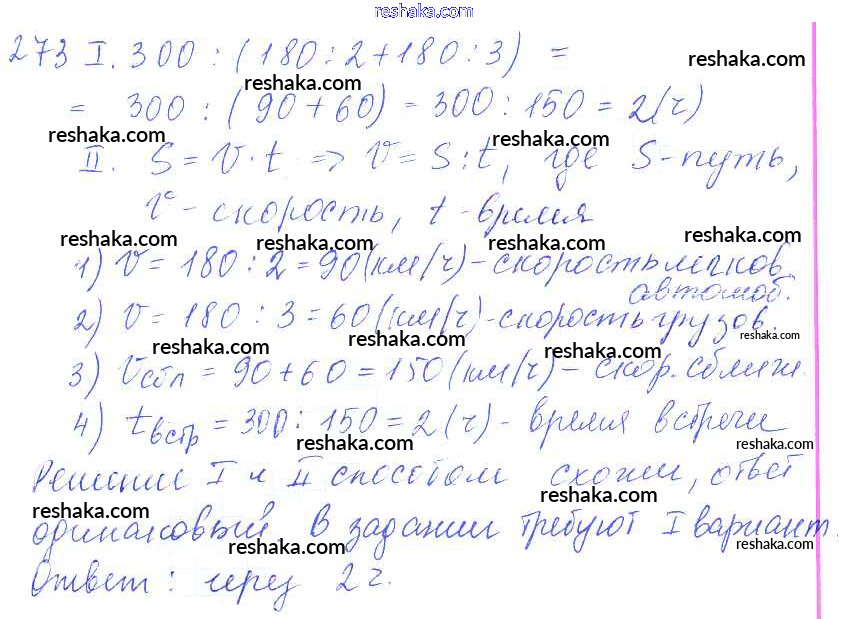 reshaka.com
273 I. 300 : (180 : 2 + 180 : 3) =
reshaka.com reshaka.com
= 300 : (90 + 60) = 300 : 150 = 2 (ч)
reshaka.com reshaka.com
II. S = v · t => v = S : t, где S - путь,
v - скорость, t - время
reshaka.com reshaka.com reshaka.com reshaka.com
1) v = 180 : 2 = 90 (км/ч) - скорость легков.
автомоб.
2) v = 180 : 3 = 60 (км/ч) - скорость грузов.
reshaka.com reshaka.com reshaka.com reshaka.com
3) vсбл = 90 + 60 = 150 (км/ч) - скор. сближ.
4) tвстр = 300 : 150 = 2 (ч) - время встречи
reshaka.com reshaka.com
Решение I и II способом схожи, ответ
reshaka.com reshaka.com
одинаковый. В задании требуют I вариант.
reshaka.com reshaka.com
Ответ: через 2 ч.